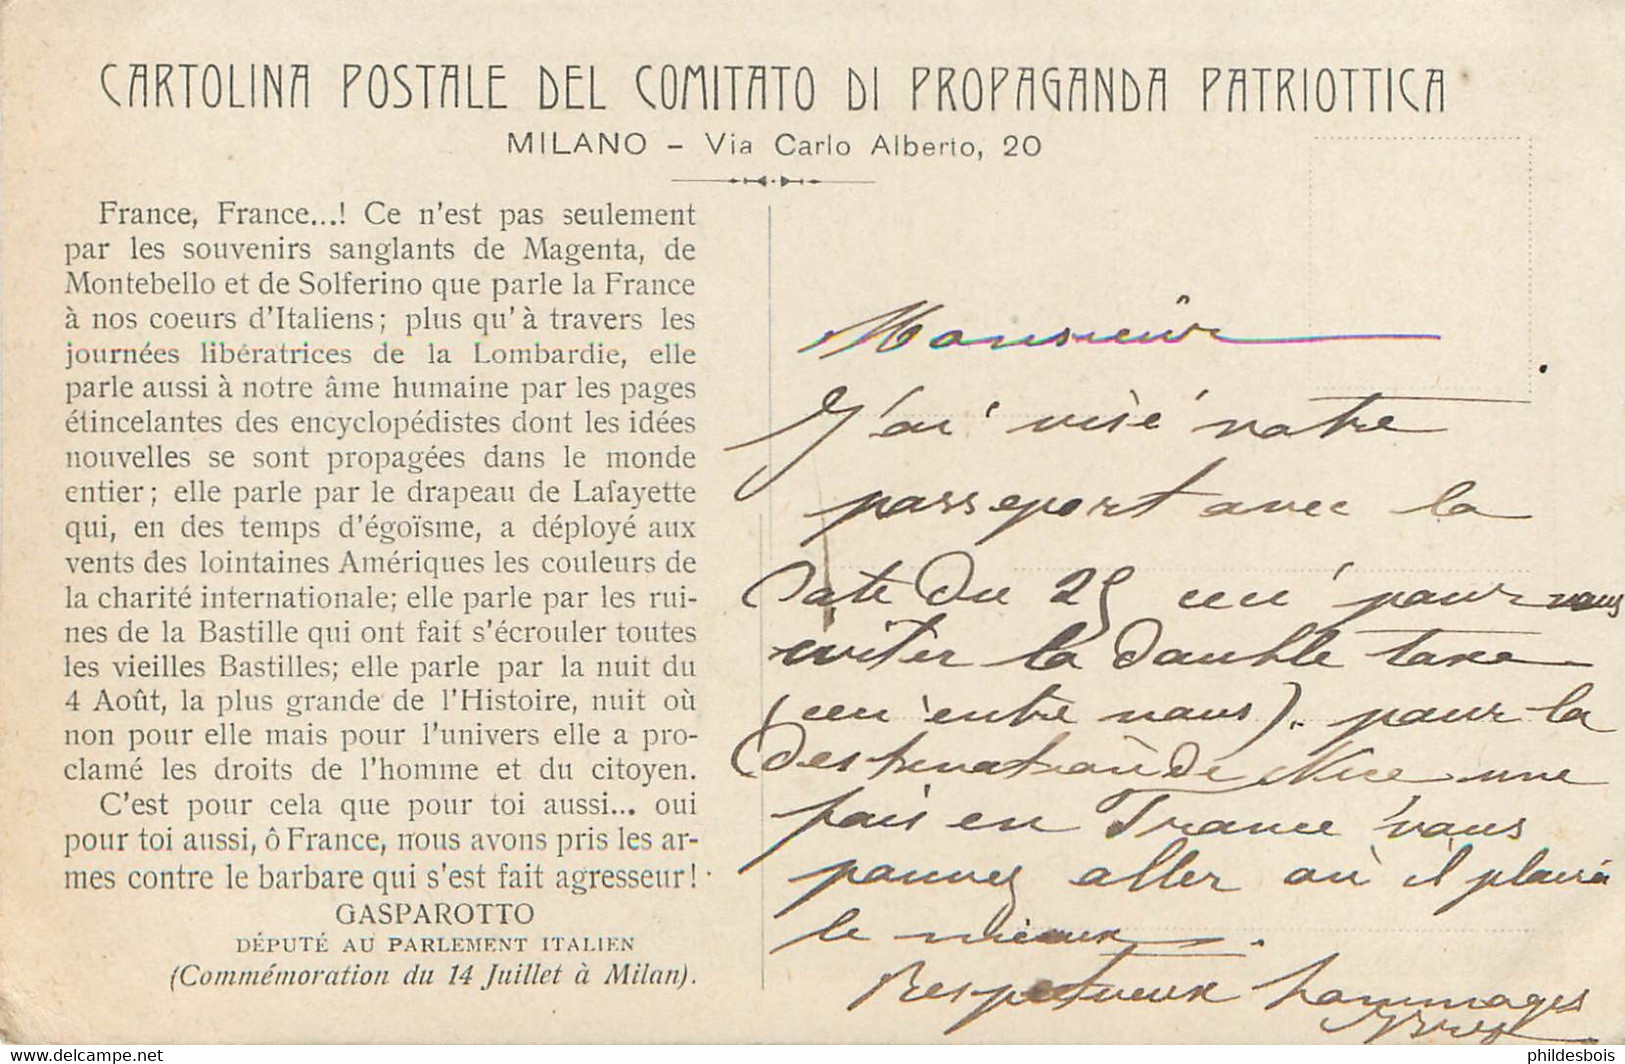 CARTOLINA POSTALE DEL COMITATO DI PROPAGANDA PATRIOTTICA
MILANO – Via Carlo Alberto, 20
France, France...! Ce n'est pas seulement
par les souvenirs sanglants de Magenta, de
Montebello et de Solferino que parle la France
à nos coeurs d'Italiens; plus qu'à travers les
journées libératrices de la Lombardie, elle
parle aussi à notre âme humaine par les pages
étincelantes des encyclopédistes dont les idées
nouvelles se sont propagées dans le monde
entier; elle parle par le drapeau de Lafayette
qui, en des temps d'égoïsme, a déployé aux
vents des lointaines Amériques les couleurs de
la charité internationale; elle parle par les rui-
nes de la Bastille qui ont fait s'écrouler toutes
les vieilles Bastilles; elle parle par la nuit du
4 Août, la plus grande de l'Histoire, nuit où
non pour elle mais pour l'univers elle a pro-
clamé les droits de l'homme et du citoyen.
C'est pour cela que pour toi aussi... oui
pour toi aussi, ô France, nous avons pris les ar-
mes contre le barbare qui s'est fait agresseur!
GASPAROTTO
DÉPUTÉ AU PARLEMENT ITALIEN
(Commémoration du 14 Juillet à Milan).
Monsieur
J'ai visé votre
passeport avec la
Date du 25 pour vous
eviter la double taxe
(entre nous). pour la
Destination de Nice une
fois en France vous
pouvez aller où il plaira
le mieux.
Respectueux hommages
phildesbois